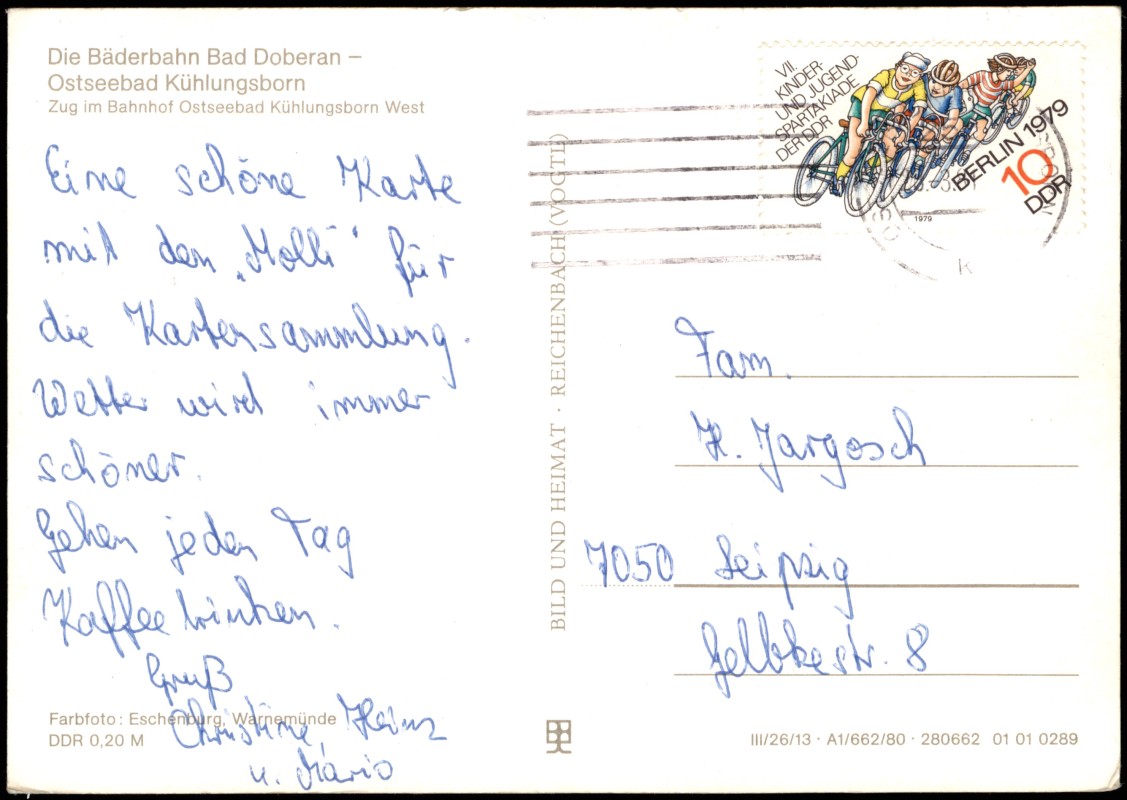 Die Bäderbahn Bad Doberan –
Ostseebad Kühlungsborn
Zug im Bahnhof Ostseebad Kühlungsborn West
Eine schöne Karte
mit den „Molli“ für
die Kartensammlung.
Wetter wird immer
schöner.
Gehen jeden Tag
Kaffee trinken.
Gruß
Christine, Heinz
u. Mario
Farbfoto: Eschenburg, Warnemünde
DDR 0,20 M
BILD UND HEIMAT · REICHENBACH (VOGTL)
VII.
KINDER-
UND JUGEND-
SPARTAKIADE
DER DDR
BERLIN 1979
10
DDR
1979
k
Fam.
H. Jargosch
7050 Leipzig
Gelbkestr. 8
III/26/13 · A1/662/80 · 280662 01 01 0289